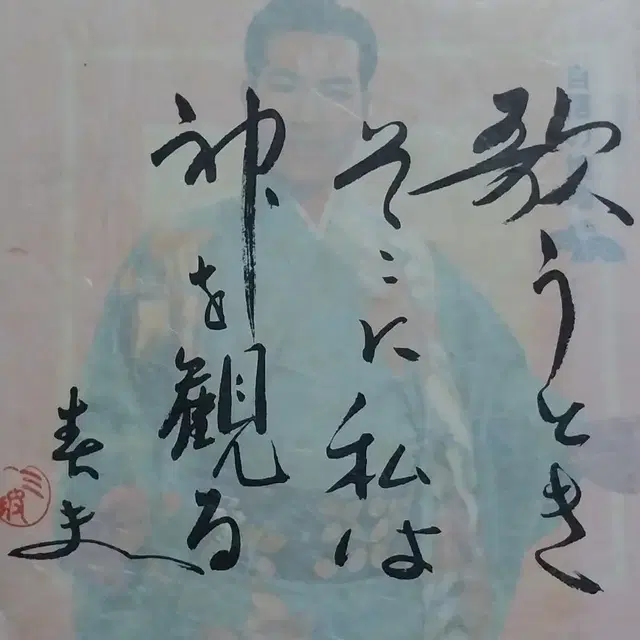 歌うとき
そこに私は
神を観る
春夫
三波